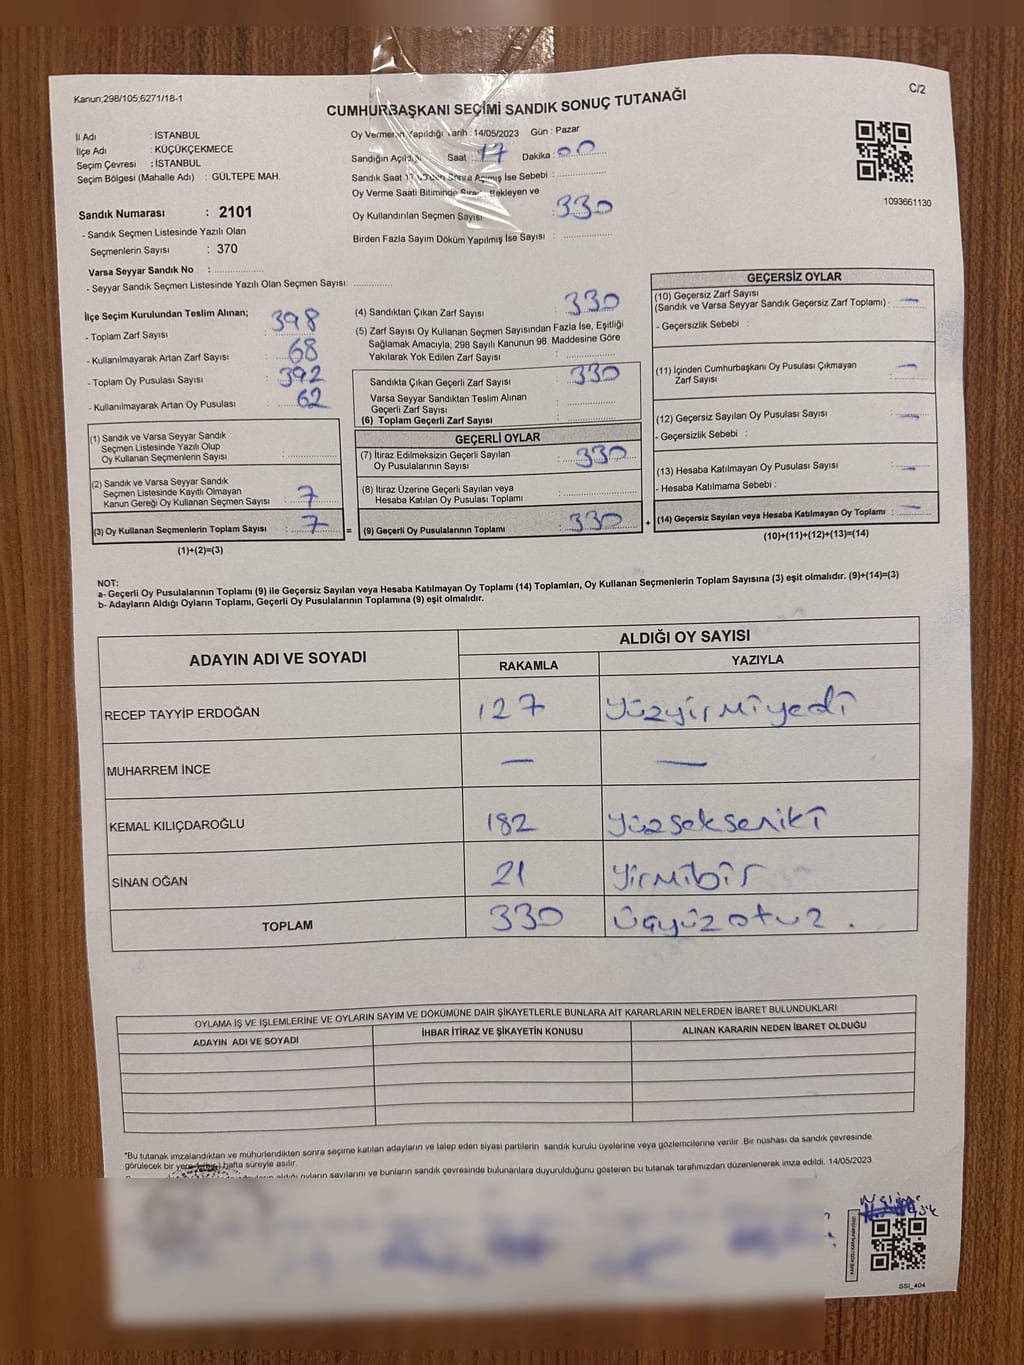 Kanun,298/105,6271/18-1
C/2
CUMHURBAŞKANI SEÇİMİ SANDIK SONUÇ TUTANAĞI
İl Adı : İSTANBUL
İlçe Adı : KÜÇÜKÇEKMECE
Seçim Çevresi : İSTANBUL
Seçim Bölgesi (Mahalle Adı) : GÜLTEPE MAH.
Sandık Numarası : 2101
- Sandık Seçmen Listesinde Yazılı Olan
Seçmenlerin Sayısı : 370
Varsa Seyyar Sandık No :
- Seyyar Sandık Seçmen Listesinde Yazılı Olan Seçmen Sayısı:
Oy Vermenin Yapıldığı Tarih :14/05/2023 Gün : Pazar
Sandığın Açıldı Saat : 17 Dakika : 00
Sandık Saat Sonra Açılmış İse Sebebi :
Oy Verme Saati Bitiminde Bekleyen ve
Oy Kullandırılan Seçmen Sayısı : 330
Birden Fazla Sayım Döküm Yapılmış İse Sayısı :
1093661130
İlçe Seçim Kurulundan Teslim Alınan;
- Toplam Zarf Sayısı : 398
- Kullanılmayarak Artan Zarf Sayısı : 68
- Toplam Oy Pusulası Sayısı : 392
- Kullanılmayarak Artan Oy Pusulası : 62
(1) Sandık ve Varsa Seyyar Sandık
Seçmen Listesinde Yazılı Olup
Oy Kullanan Seçmenlerin Sayısı :
(2) Sandık ve Varsa Seyyar Sandık
Seçmen Listesinde Kayıtlı Olmayan
Kanun Gereği Oy Kullanan Seçmen Sayısı : 7
(3) Oy Kullanan Seçmenlerin Toplam Sayısı : 7 =
(1)+(2)=(3)
(4) Sandıktan Çıkan Zarf Sayısı : 330
(5) Zarf Sayısı Oy Kullanan Seçmen Sayısından Fazla İse, Eşitliği
Sağlamak Amacıyla; 298 Sayılı Kanunun 98. Maddesine Göre
Yakılarak Yok Edilen Zarf Sayısı :
Sandıkta Çıkan Geçerli Zarf Sayısı : 330
Varsa Seyyar Sandıktan Teslim Alınan
Geçerli Zarf Sayısı :
(6) Toplam Geçerli Zarf Sayısı :
GEÇERLİ OYLAR
(7) İtiraz Edilmeksizin Geçerli Sayılan
Oy Pusulalarının Sayısı : 330
(8) İtiraz Üzerine Geçerli Sayılan veya
Hesaba Katılan Oy Pusulası Toplamı :
(9) Geçerli Oy Pusulalarının Toplamı : 330 +
GEÇERSİZ OYLAR
(10) Geçersiz Zarf Sayısı
(Sandık ve Varsa Seyyar Sandık Geçersiz Zarf Toplamı) : —
- Geçersizlik Sebebi :
(11) İçinden Cumhurbaşkanı Oy Pusulası Çıkmayan
Zarf Sayısı : —
(12) Geçersiz Sayılan Oy Pusulası Sayısı : —
- Geçersizlik Sebebi :
(13) Hesaba Katılmayan Oy Pusulası Sayısı : —
- Hesaba Katılmama Sebebi :
(14) Geçersiz Sayılan veya Hesaba Katılmayan Oy Toplamı : —
(10)+(11)+(12)+(13)=(14)
NOT:
a- Geçerli Oy Pusulalarının Toplamı (9) ile Geçersiz Sayılan veya Hesaba Katılmayan Oy Toplamı (14) Toplamları, Oy Kullanan Seçmenlerin Toplam Sayısına (3) eşit olmalıdır. (9)+(14)=(3)
b- Adayların Aldığı Oyların Toplamı, Geçerli Oy Pusulalarının Toplamına (9) eşit olmalıdır.
ADAYIN ADI VE SOYADI ALDIĞI OY SAYISI
RAKAMLA YAZIYLA
RECEP TAYYİP ERDOĞAN 127 Yüzyirmiyedi
MUHARREM İNCE — —
KEMAL KILIÇDAROĞLU 182 Yüzsekseniki
SİNAN OĞAN 21 Yirmibir
TOPLAM 330 Üçyüzotuz.
OYLAMA İŞ VE İŞLEMLERİNE VE OYLARIN SAYIM VE DÖKÜMÜNE DAİR ŞİKAYETLERLE BUNLARA AİT KARARLARIN NELERDEN İBARET BULUNDUKLARI
ADAYIN ADI VE SOYADI İHBAR İTİRAZ VE ŞİKAYETİN KONUSU ALINAN KARARIN NEDEN İBARET OLDUĞU
*Bu tutanak imzalandıktan ve mühürlendikten sonra seçime katılan adayların ve talep eden siyasi partilerin sandık kurulu üyelerine veya gözlemcilerine verilir. Bir nüshası da sandık çevresinde
görülecek bir yere hafta süreyle asılır.
aldığı oyların sayılarını ve bunların sandık çevresinde bulunanlara duyurulduğunu gösteren bu tutanak tarafımızdan düzenlenerek imza edildi. 14/05/2023
SSI_404